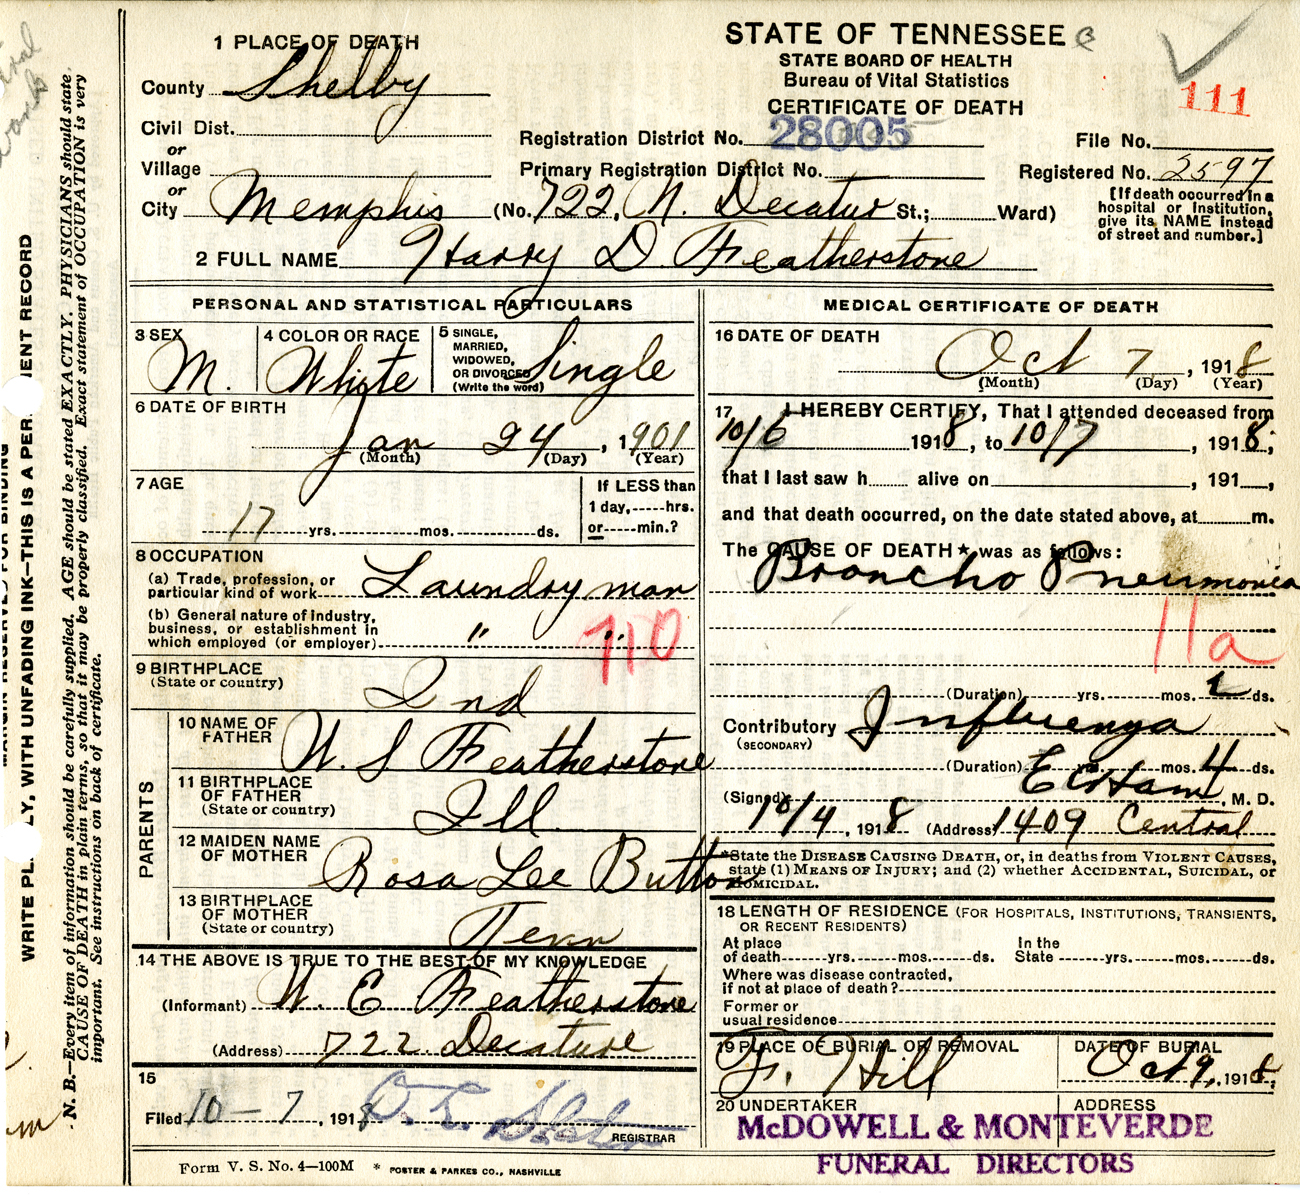 STATE OF TENNESSEE
STATE BOARD OF HEALTH
Bureau of Vital Statistics
CERTIFICATE OF DEATH
111
1 PLACE OF DEATH
County Shelby
Civil Dist.
or
Village
or
City Memphis (No. 722, N. Decatur St.; Ward)
Registration District No. 28005
Primary Registration District No.
File No.
Registered No. 2597
[If death occurred in a
hospital or institution,
give its NAME instead
of street and number.]
2 FULL NAME Harry D. Featherstone
PERSONAL AND STATISTICAL PARTICULARS
3 SEX M.
4 COLOR OR RACE White
5 SINGLE,
MARRIED,
WIDOWED,
OR DIVORCED
(Write the word) Single
6 DATE OF BIRTH
Jan 24, 1901
(Month) (Day) (Year)
7 AGE
17 yrs. mos. ds.
If LESS than
1 day, hrs.
or min.?
8 OCCUPATION
(a) Trade, profession, or
particular kind of work Laundry man
(b) General nature of industry,
business, or establishment in
which employed (or employer) " "
710
9 BIRTHPLACE
(State or country) Ind
PARENTS
10 NAME OF
FATHER W. S Featherstone
11 BIRTHPLACE
OF FATHER
(State or country) Ill.
12 MAIDEN NAME
OF MOTHER Rosa Lee Button
13 BIRTHPLACE
OF MOTHER
(State or country) Tenn
14 THE ABOVE IS TRUE TO THE BEST OF MY KNOWLEDGE
(Informant) W. E Featherstone
(Address) 722. Decature
15
Filed 10-7, 1918
REGISTRAR
MEDICAL CERTIFICATE OF DEATH
16 DATE OF DEATH
Oct 7, 1918
(Month) (Day) (Year)
17 I HEREBY CERTIFY, That I attended deceased from
10/6 1918, to 10/7, 1918;
that I last saw h alive on , 191 ,
and that death occurred, on the date stated above, at m.
The CAUSE OF DEATH* was as follows:
Broncho Pneumonia
11a
(Duration) yrs. mos. 2 ds.
Contributory Influenza
(SECONDARY)
(Duration) yrs. mos. 4 ds.
(Signed) , M. D.
10/4, 1918 (Address) 1409 Central
*State the DISEASE CAUSING DEATH, or, in deaths from VIOLENT CAUSES,
state (1) MEANS OF INJURY; and (2) whether ACCIDENTAL, SUICIDAL, or
HOMICIDAL.
18 LENGTH OF RESIDENCE (FOR HOSPITALS, INSTITUTIONS, TRANSIENTS,
OR RECENT RESIDENTS)
At place
of death yrs. mos. ds.
In the
State yrs. mos. ds.
Where was disease contracted,
if not at place of death?
Former or
usual residence
19 PLACE OF BURIAL OR REMOVAL
F. Hill
DATE OF BURIAL
Oct 9, 1918
20 UNDERTAKER
ADDRESS
McDOWELL & MONTEVERDE
FUNERAL DIRECTORS
Form V. S. No. 4—100M * POSTER & PARKES CO., NASHVILLE
MARGIN RESERVED FOR BINDING
N. B.—Every item of information should be carefully supplied. AGE should be stated EXACTLY. PHYSICIANS should state
CAUSE OF DEATH in plain terms, so that it may be properly classified. Exact statement of OCCUPATION is very
important. See instructions on back of certificate.